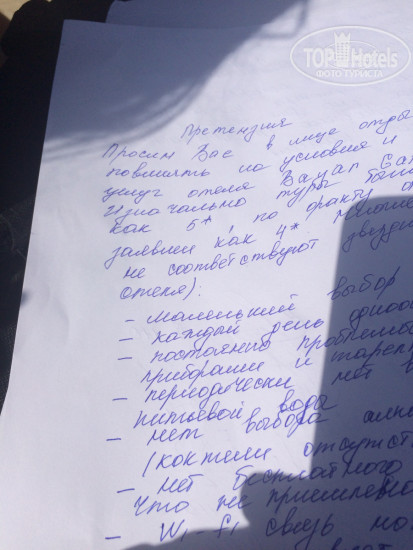 TOP Hotels
ФОТО ТУРИСТА
Претензия
Просим Вас в лице отды
повлиять на условия и
услуг отеля Bayar Gar
Изначально туры были
как 5* по факту о
заявлен как 4*
не соответствуют звездн
отеля):
- маленький выбор
- каждый день одноо
- постоянно проблемы
приборами и тарел
- периодически нет в
питьевой воды
- нет выбора алко
(коктели отсутст
- нет бесплатного
что не приемлемо
- Wi-fi связь